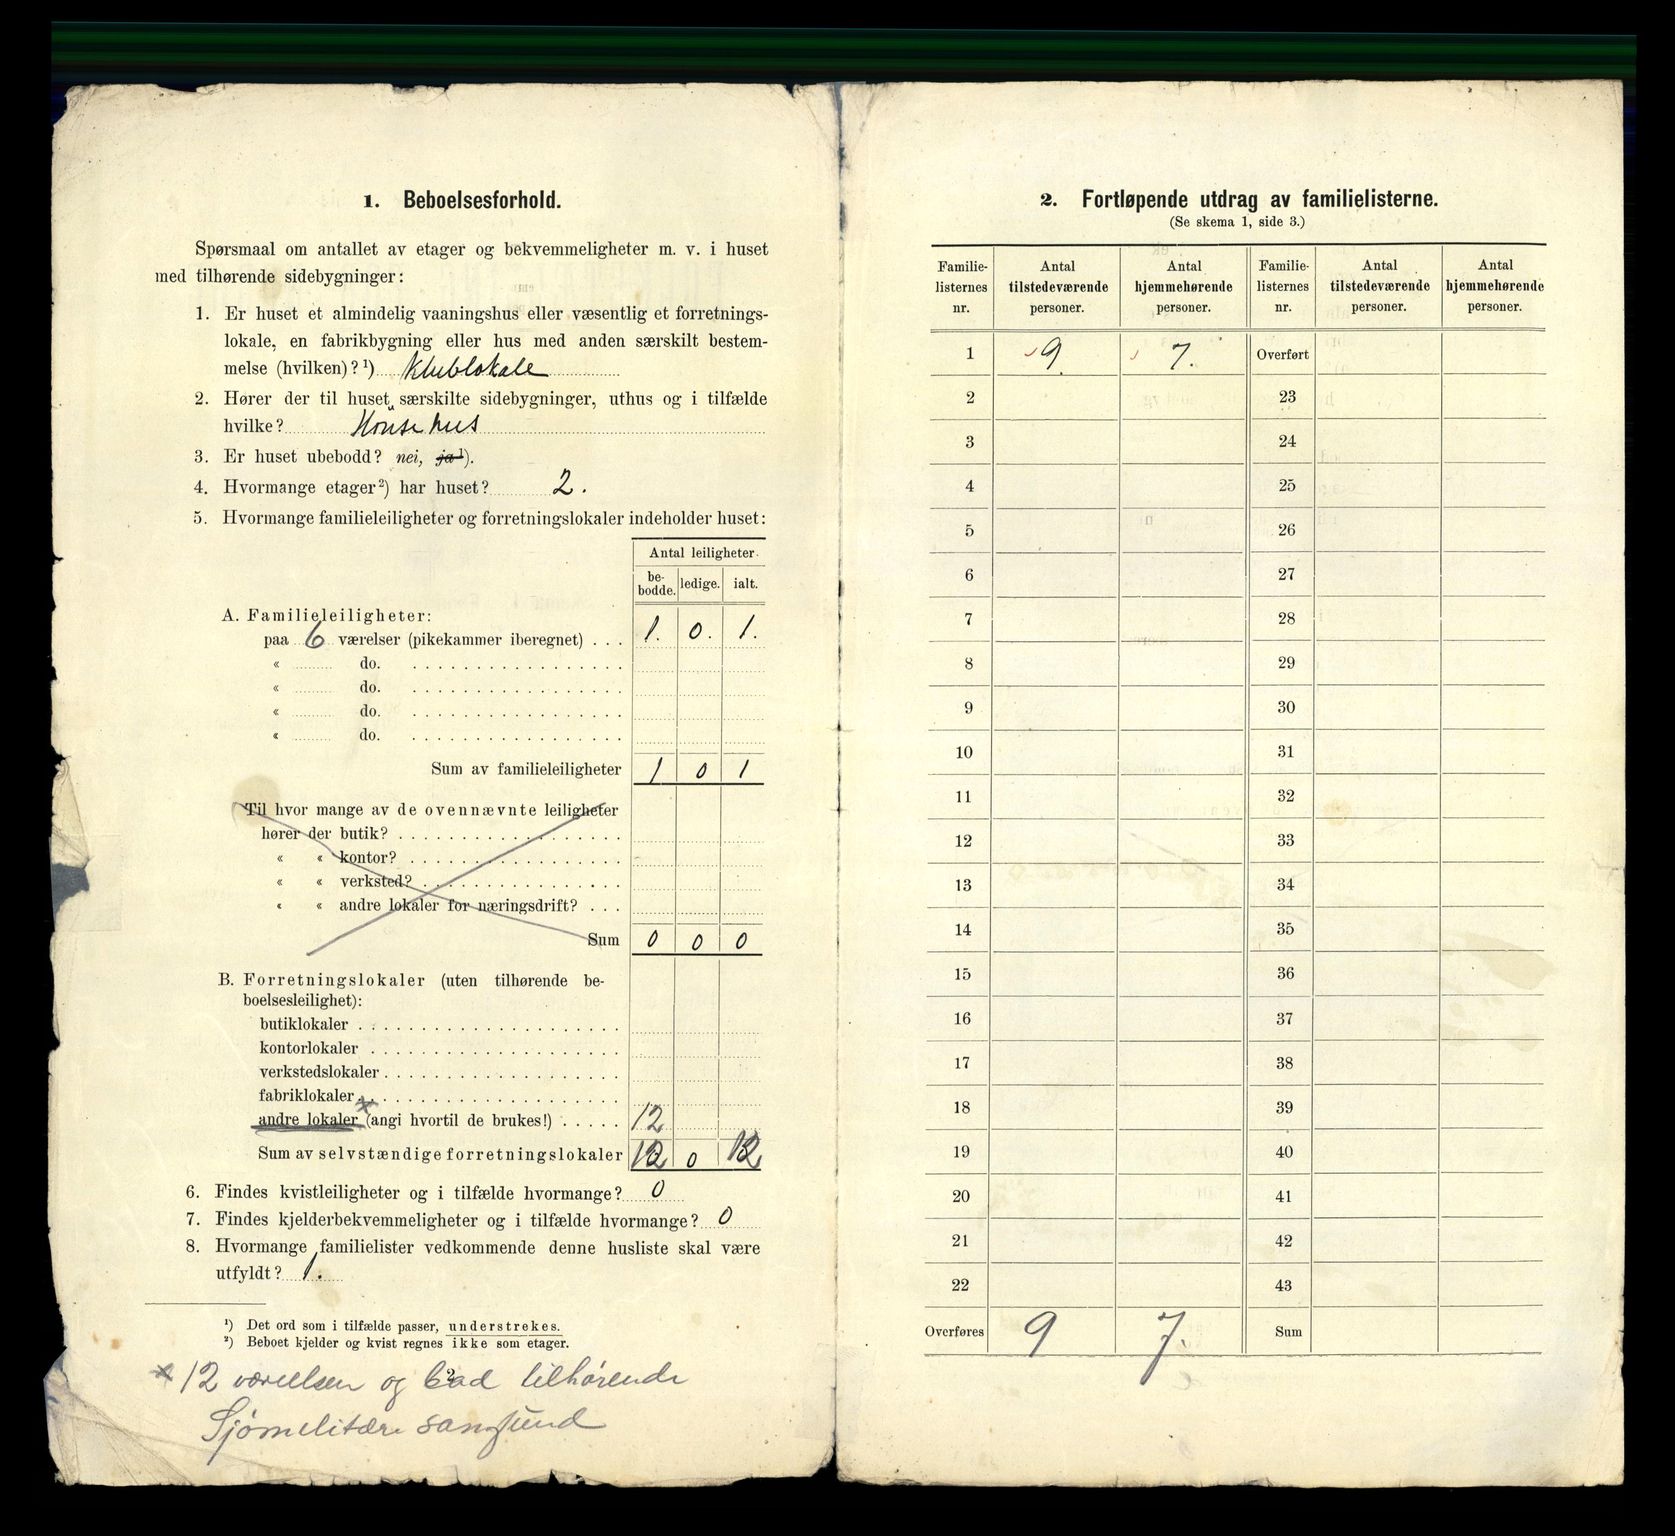 1. Beboelsesforhold.
Spørsmaal om antallet av etager og bekvemmeligheter m. v. i huset
med tilhørende sidebygninger:
1. Er huset et almindelig vaaningshus eller væsentlig et forretnings-
lokale, en fabrikbygning eller hus med anden særskilt bestem-
melse (hvilken)?¹) Klublokale
2. Hører der til huset særskilte sidebygninger, uthus og i tilfælde
hvilke? Hønsehus
3. Er huset ubebodd? nei, ja¹).
4. Hvormange etager²) har huset? 2.
5. Hvormange familieleiligheter og forretningslokaler indeholder huset:
Antal leiligheter.
be-
bodde. ledige. ialt.
A. Familieleiligheter:
paa 6 værelser (pikekammer iberegnet) . . . 1. 0. 1.
« do.
« do.
« do.
« do.
Sum av familieleiligheter 1 0 1
Til hvor mange av de ovennævnte leiligheter
hører der butik?
« « kontor?
« « verksted?
« « andre lokaler for næringsdrift? . . .
Sum 0 0 0
B. Forretningslokaler (uten tilhørende be-
boelsesleilighet):
butiklokaler
kontorlokaler
verkstedslokaler
fabriklokaler
andre lokaler × (angi hvortil de brukes!) . . . . . 12
Sum av selvstændige forretningslokaler 12 0 12
6. Findes kvistleiligheter og i tilfælde hvormange? 0
7. Findes kjelderbekvemmeligheter og i tilfælde hvormange? 0
8. Hvormange familielister vedkommende denne husliste skal være
utfyldt? 1.
¹) Det ord som i tilfælde passer, understrekes.
²) Beboet kjelder og kvist regnes ikke som etager.
2
× 12 værelser og bad tilhørende
Sjømilitære samfund
2. Fortløpende utdrag av familielisterne.
(Se skema 1, side 3.)
Familie-
listernes
nr. Antal
tilstedeværende
personer. Antal
hjemmehørende
personer. Familie-
listernes
nr. Antal
tilstedeværende
personer. Antal
hjemmehørende
personer.
1 9 7. Overført
2 23
3 24
4 25
5 26
6 27
7 28
8 29
9 30
10 31
11 32
12 33
13 34
14 35
15 36
16 37
17 38
18 39
19 40
20 41
21 42
22 43
Overføres 9 7. Sum